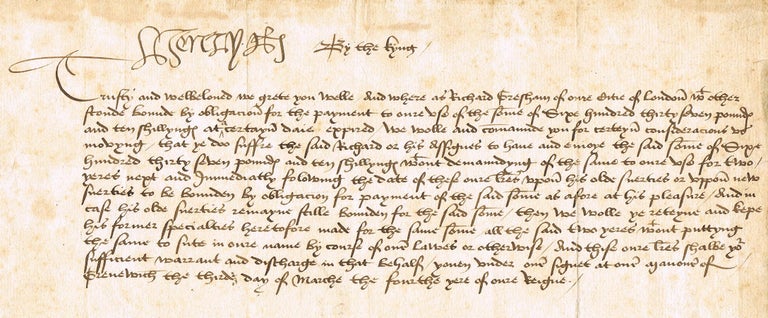 Henry R By the kyng
Trusty and welbelovd we grete you welle And where as Richard Gresham of oure Citie of London wt other
stonde bounde by obligacion for the payment to oure use of the some of Sixe hundred thirty seven poundes
and ten shyllynges at certayn daies expired We wolle and comaunde you for certeyn consideracions us
movyng, that ye doo suffre the said Richard or his assignes to have and enioye the said some of Sixe
hundred thirty seven poundes and ten shyllynges wtout demaundyng of the same to oure use for two
yeres next and Immediatly folowing the date of these oure lres, upon his olde suerties or uppon new
suerties to be bounden by obligacion for payment of the said some as afore at his pleasure, And in
case his olde suerties remayne stille bounden for the said some, then we wolle ye reteyne and kepe
his former specialties heretofore made for the same some all the said two yeres wtout puttyng
the same to sute in oure name by course of our Lawes or otherwise And these oure lres shalbe yor
sufficient warrant and discharge in that behalf, yoven under our signet at our manour of
Grenewiche the thirde day of Marche the fourthe yere of oure Reigne